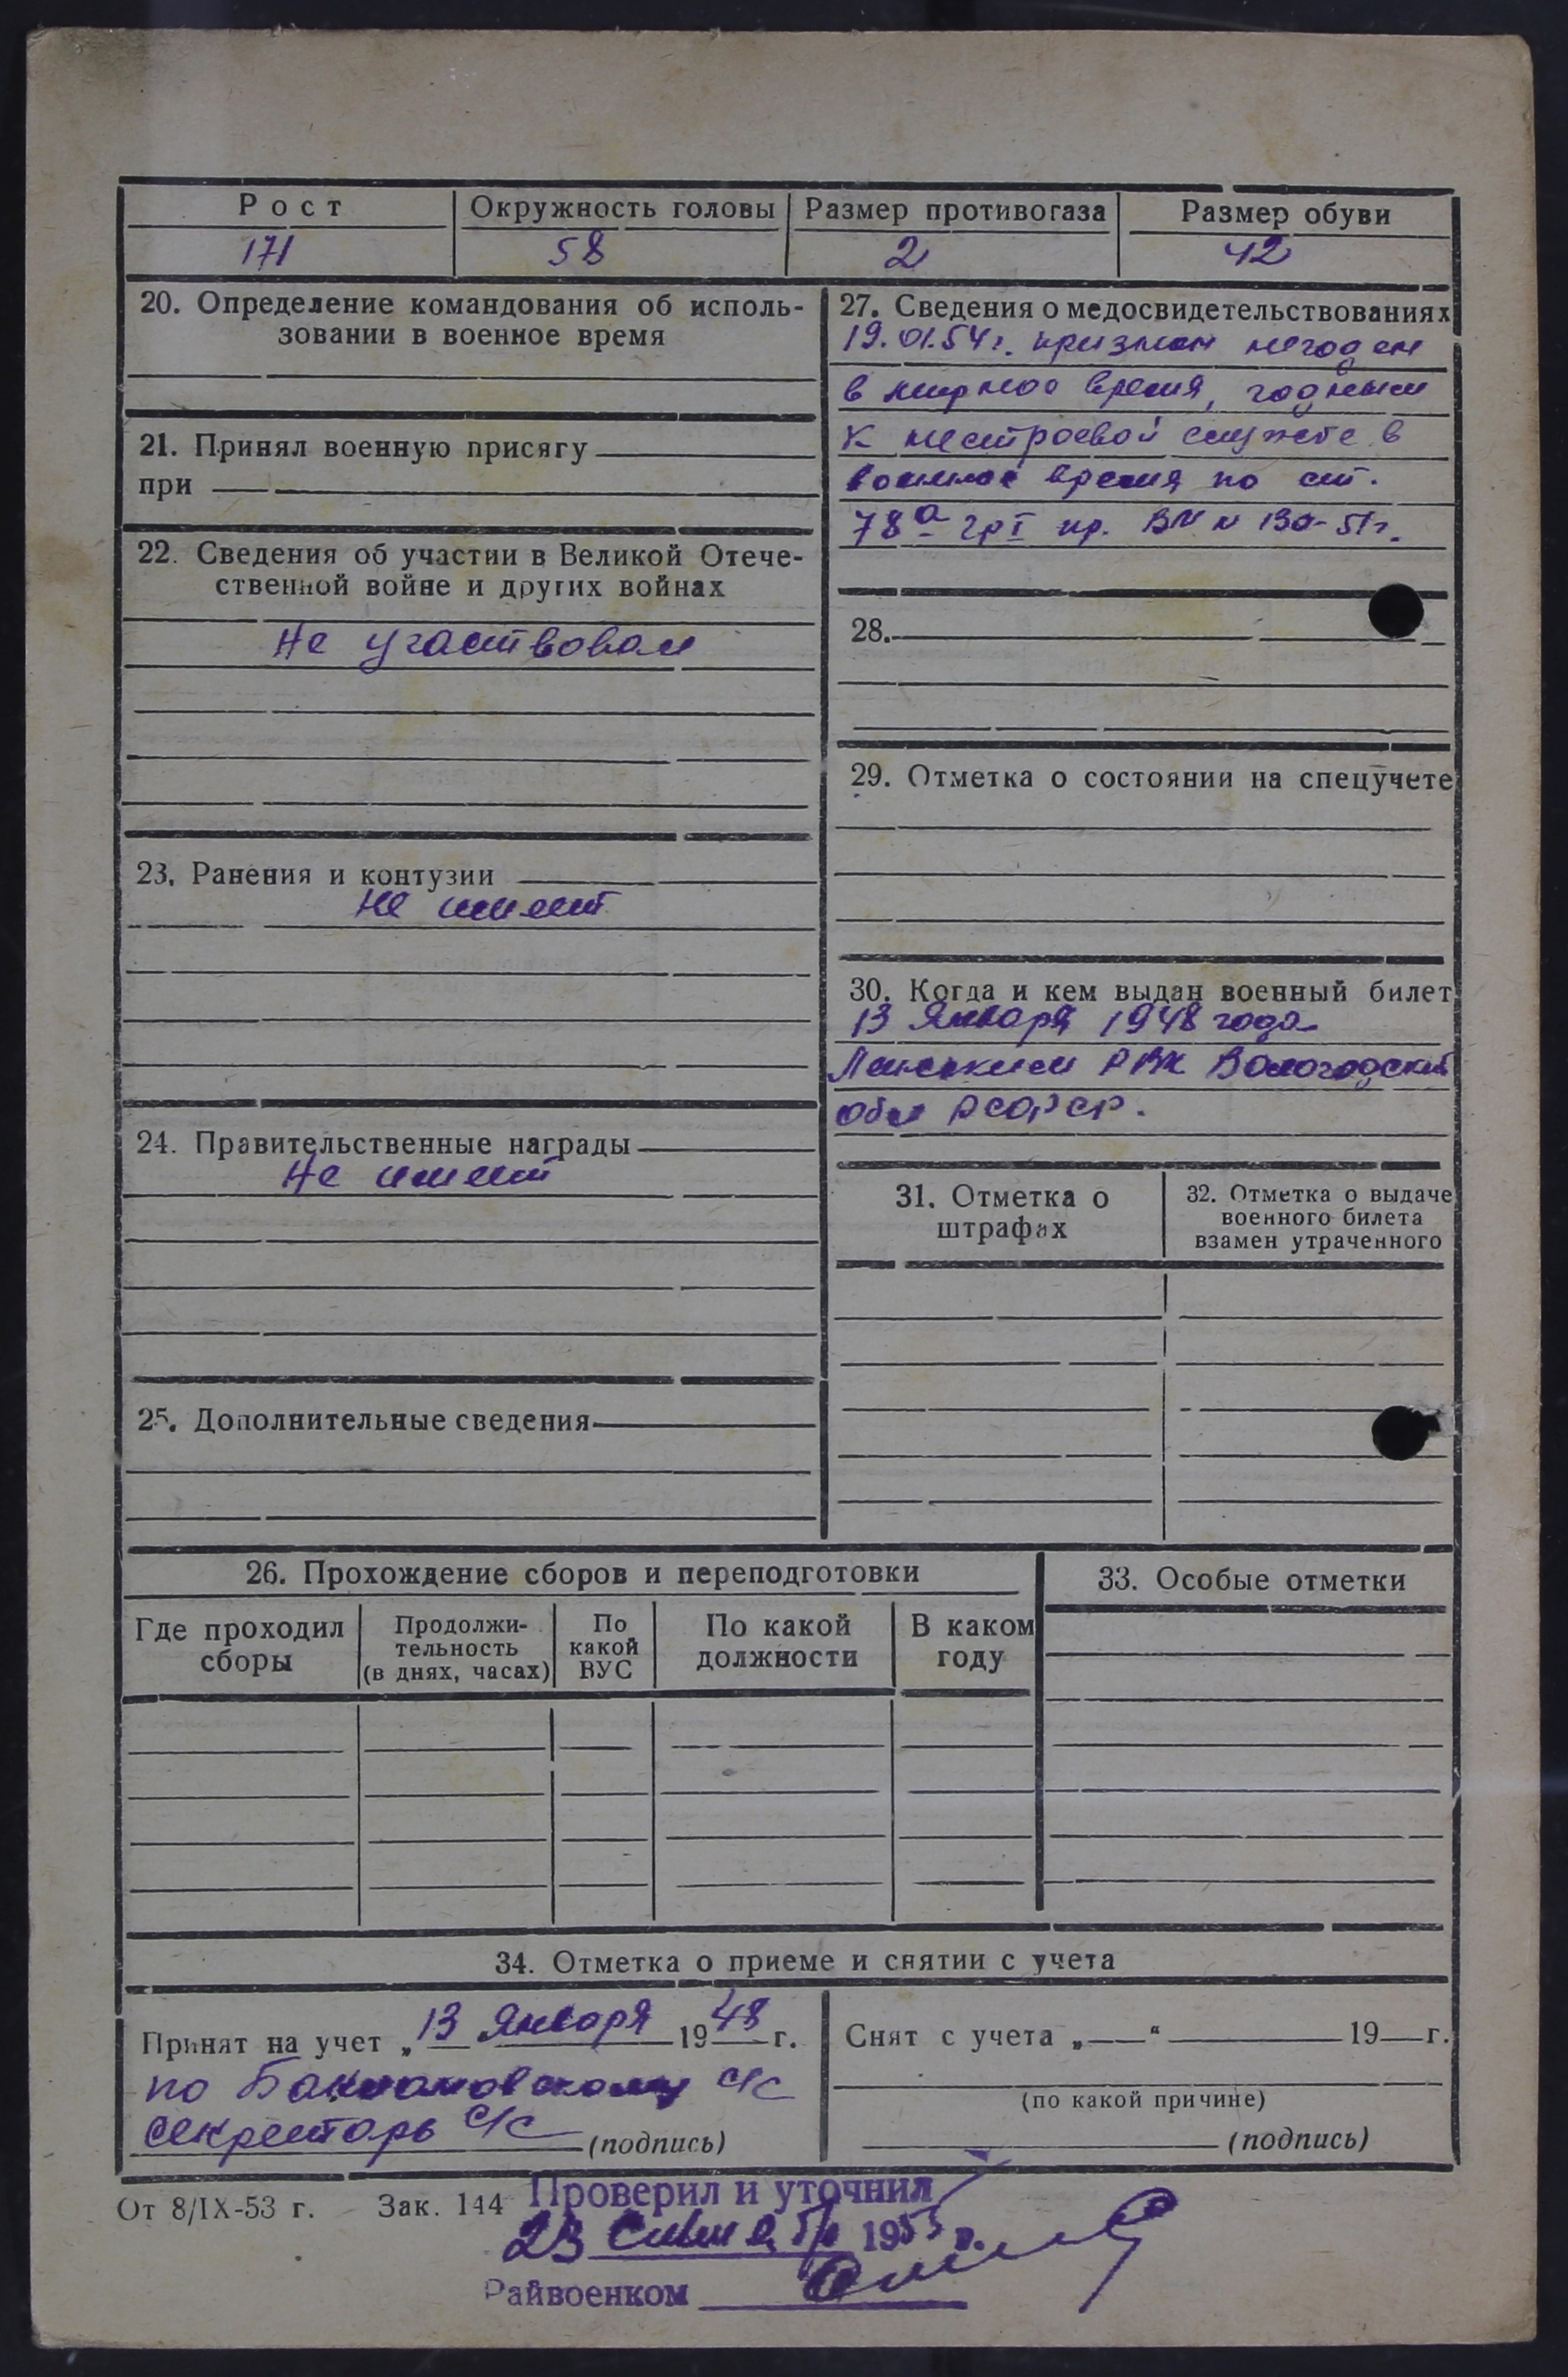 Рост Окружность головы Размер противогаза Размер обуви
171 58 2 42
20. Определение командования об исполь-
зовании в военное время
21. Принял военную присягу
при
22. Сведения об участии в Великой Отече-
ственной войне и других войнах
Не участвовал
23. Ранения и контузии
не имеет
24. Правительственные награды
Не имеет
25. Дополнительные сведения
27. Сведения о медосвидетельствованиях
19.01.54 г. признан негоден
в мирное время, годным
к нестроевой службе в
военное время по ст.
78а гр I пр. ВМ N 130-51г.
28.
29. Отметка о состоянии на спецучете
30. Когда и кем выдан военный билет
13 Января 1948 года
РВК Вологодской
обл РСФСР.
31. Отметка о
штрафах
32. Отметка о выдаче
военного билета
взамен утраченного
26. Прохождение сборов и переподготовки
Где проходил
сборы
Продолжи-
тельность
(в днях, часах)
По
какой
ВУС
По какой
должности
В каком
году
33. Особые отметки
34. Отметка о приеме и снятии с учета
Принят на учет „13 Января 1948 г.
по с/с
секретарь с/с (подпись)
Снят с учета „ “ 19 г.
(по какой причине)
(подпись)
От 8/IX-53 г. Зак. 144
Проверил и уточнил
23 1955 г.
Райвоенком